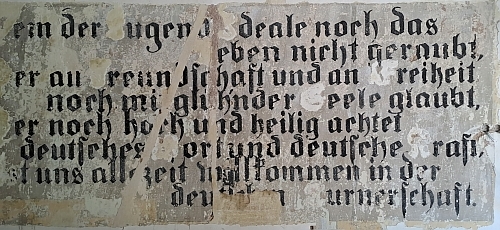 em der ugend deale noch das
eben nicht geraubt,
er an reundschaft und an Freiheit
noch mit glühnder Seele glaubt,
er noch hoch und heilig achtet
deutsches ort und deutsche raft,
st uns allezeit willkommen in der
deutschen urnerschaft.